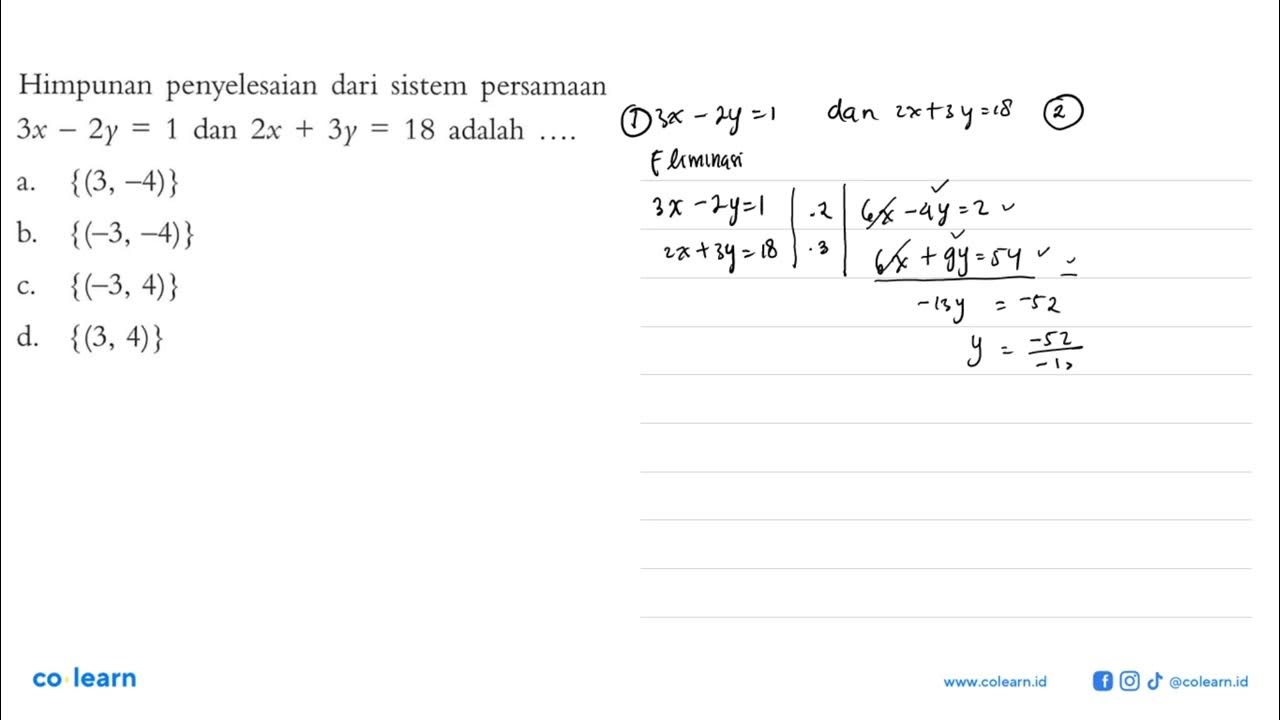 Himpunan penyelesaian dari sistem persamaan
3x − 2y = 1 dan 2x + 3y = 18 adalah ....
a. {(3, −4)}
b. {(−3, −4)}
c. {(−3, 4)}
d. {(3, 4)}
① 3x − 2y = 1 dan 2x + 3y = 18 ②
Eliminasi
3x − 2y = 1 | .2 | 6x − 4y = 2 ✓
2x + 3y = 18 | .3 | 6x + 9y = 54 ✓ −
−13y = −52
y = −52/−13
co learn
www.colearn.id @colearn.id